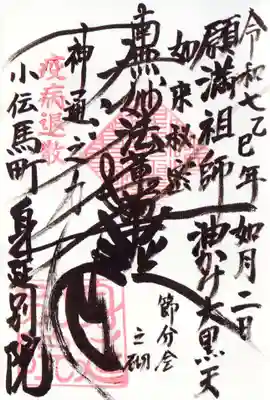 令和七乙巳年 如月二日
願満祖師 油かけ大黒天
如来秘密
南無妙法蓮華経
神通之力
節分会
之砌
疫病退散
小伝馬町 身延別院